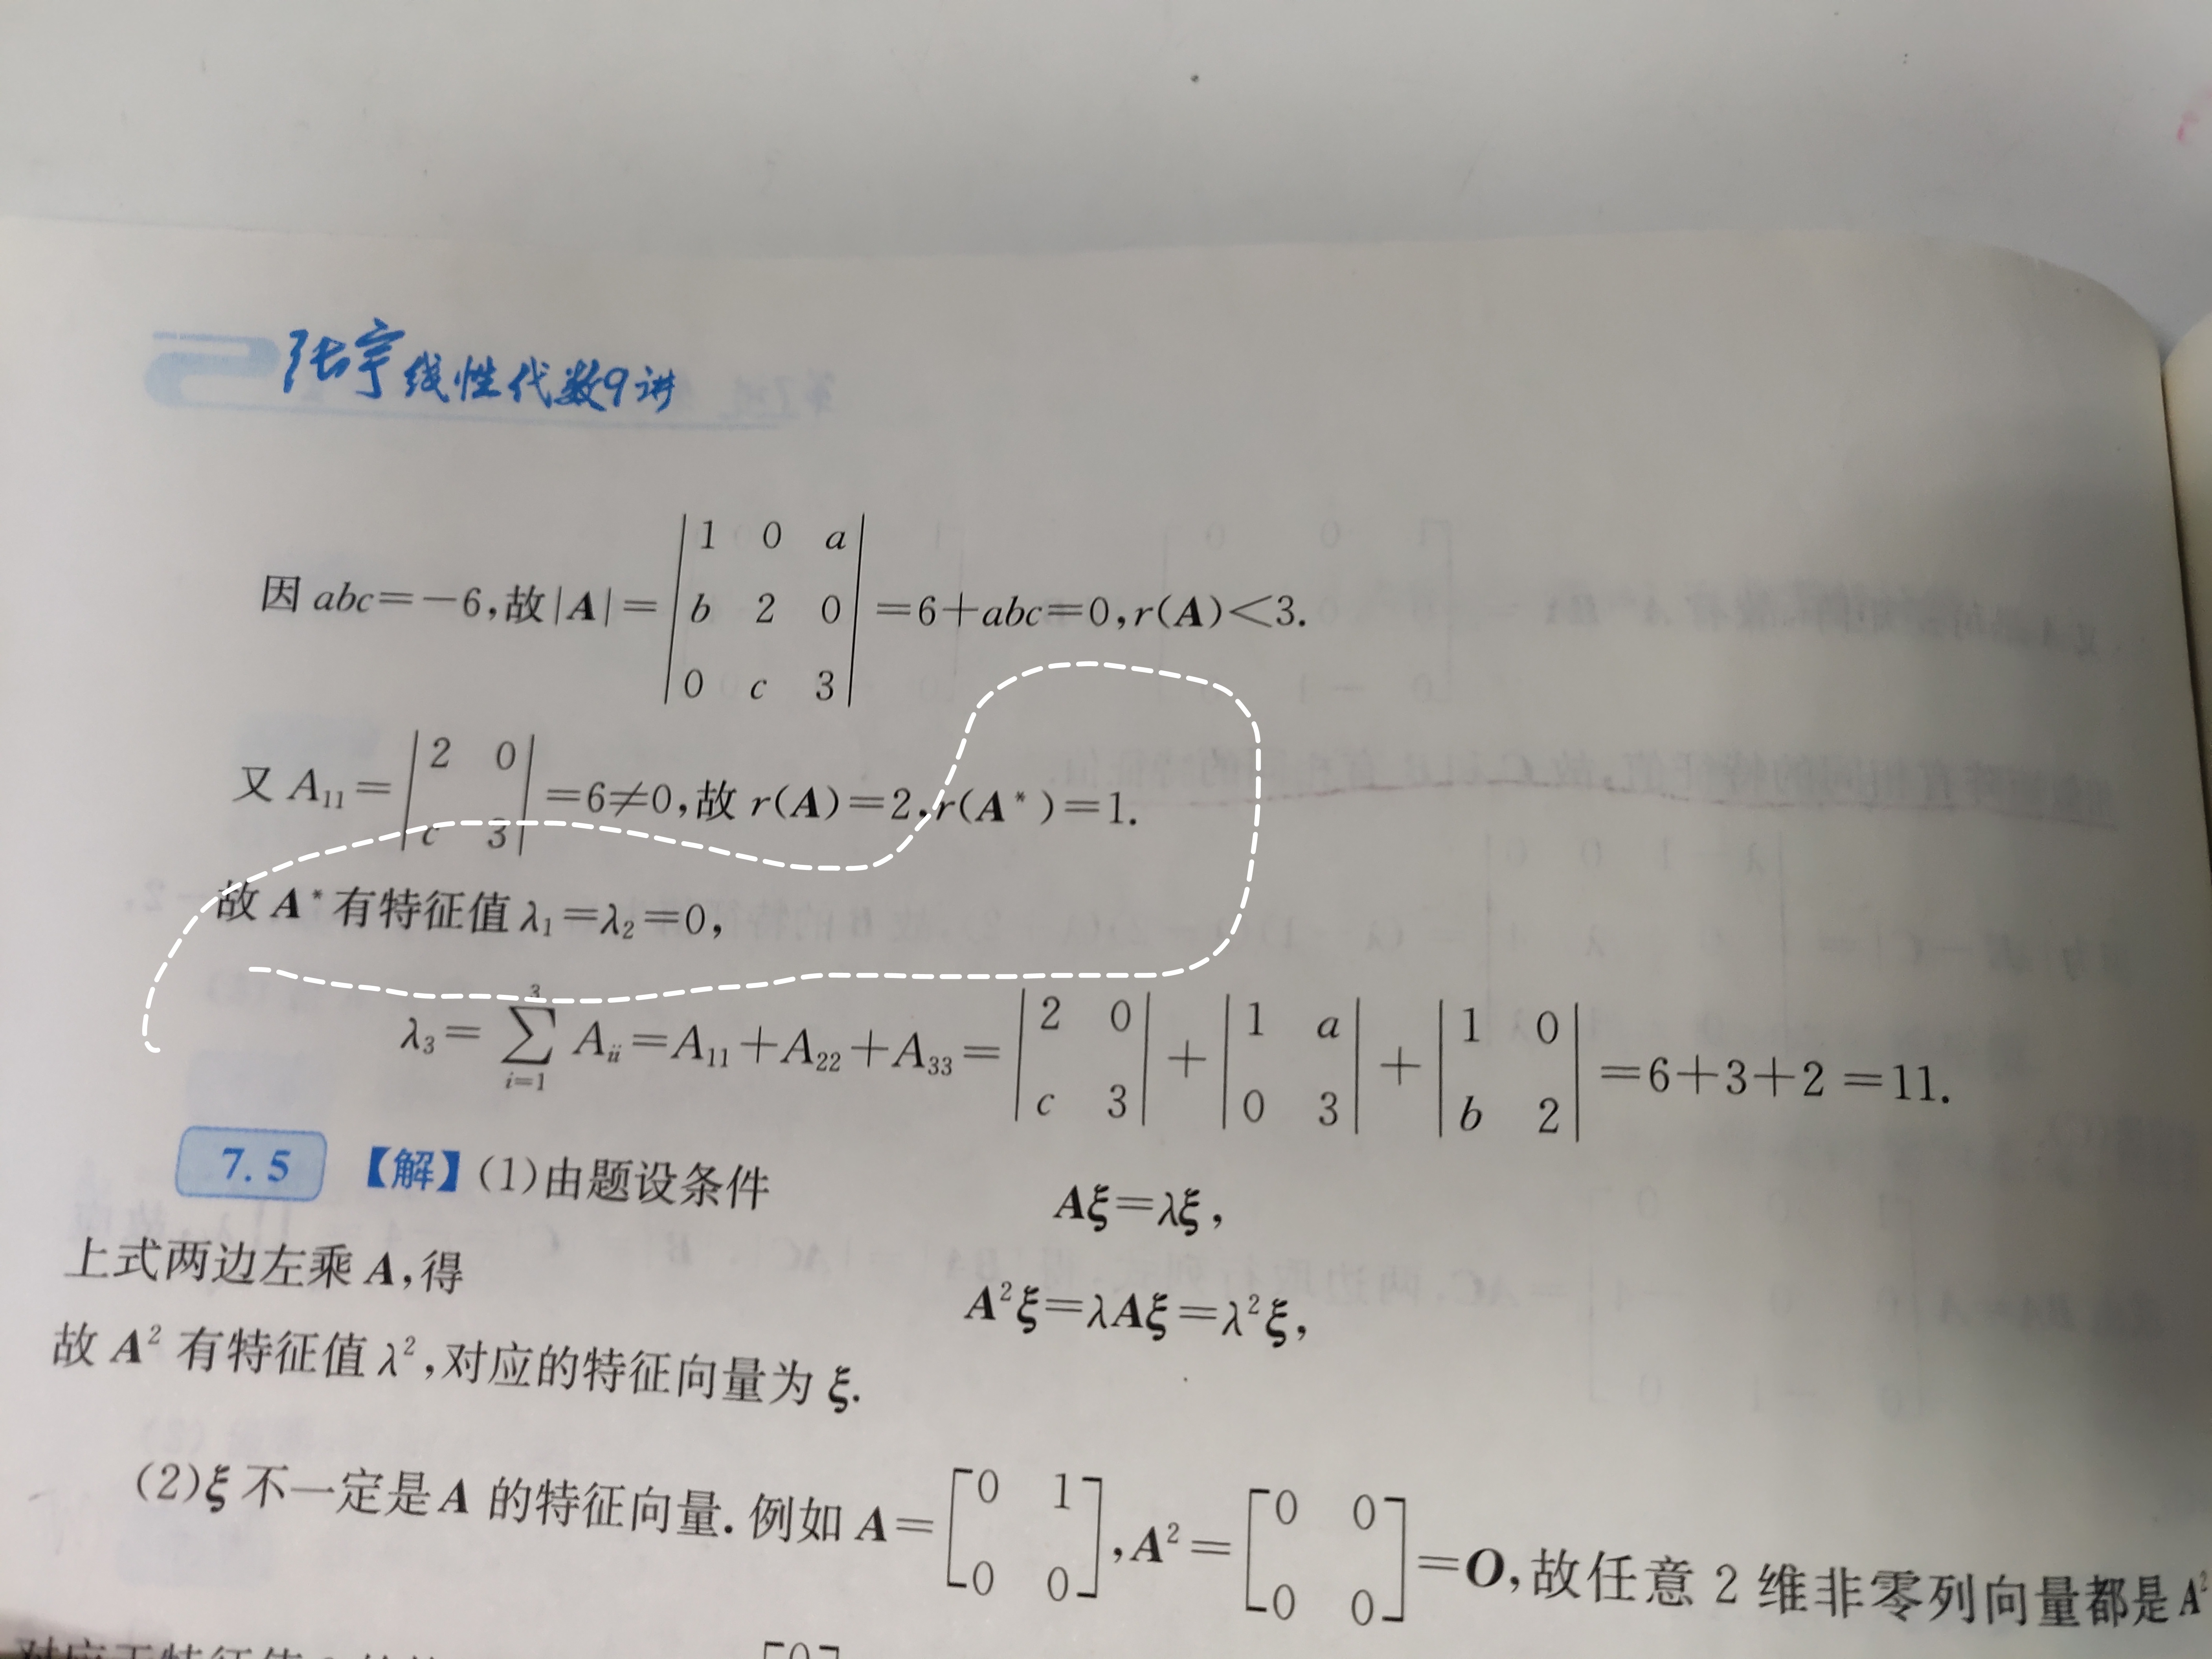 张宇线性代数9讲
因 abc=-6,故|A|= | 1 0 a | =6+abc=0,r(A)<3.
| b 2 0 |
| 0 c 3 |
又 A₁₁= | 2 0 | =6≠0,故 r(A)=2,r(A*)=1.
| c 3 |
故 A* 有特征值 λ₁=λ₂=0,
λ₃= ∑_{i=1}^{3} Aᵢᵢ=A₁₁+A₂₂+A₃₃= | 2 0 | + | 1 a | + | 1 0 | =6+3+2=11.
| c 3 | | 0 3 | | b 2 |
7.5 【解】(1)由题设条件
Aξ=λξ,
上式两边左乘 A,得
A²ξ=λAξ=λ²ξ,
故 A² 有特征值 λ²,对应的特征向量为 ξ.
(2)ξ 不一定是 A 的特征向量. 例如 A= [ 0 1 ] ,A²= [ 0 0 ] =O,故任意 2 维非零列向量都是 A²
[ 0 0 ] [ 0 0 ]